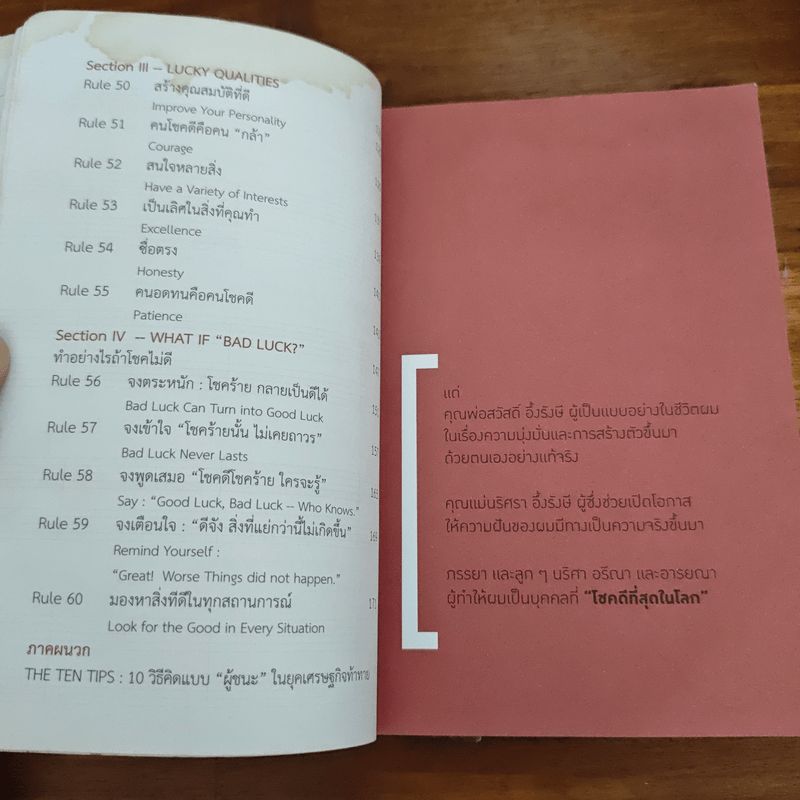 Section III – LUCKY QUALITIES
Rule 50 สร้างคุณสมบัติที่ดี
Improve Your Personality
Rule 51 คนโชคดีคือคน “กล้า”
Courage
Rule 52 สนใจหลายสิ่ง
Have a Variety of Interests
Rule 53 เป็นเลิศในสิ่งที่คุณทำ
Excellence
Rule 54 ซื่อตรง
Honesty
Rule 55 คนอดทนคือคนโชคดี
Patience
Section IV – WHAT IF “BAD LUCK?”
ทำอย่างไรถ้าโชคไม่ดี
Rule 56 จงตระหนัก : โชคร้าย กลายเป็นดีได้
Bad Luck Can Turn into Good Luck
Rule 57 จงเข้าใจ “โชคร้ายนั้น ไม่เคยถาวร”
Bad Luck Never Lasts
Rule 58 จงพูดเสมอ “โชคดีโชคร้าย ใครจะรู้”
Say : “Good Luck, Bad Luck -- Who Knows.”
Rule 59 จงเตือนใจ : “ดีจัง สิ่งที่แย่กว่านี้ไม่เกิดขึ้น” 169
Remind Yourself :
“Great! Worse Things did not happen.”
Rule 60 มองหาสิ่งที่ดีในทุกสถานการณ์
Look for the Good in Every Situation
ภาคผนวก
THE TEN TIPS : 10 วิธีคิดแบบ “ผู้ชนะ” ในยุคเศรษฐกิจท้าทาย
แด่
คุณพ่อสวัสดิ์ อึ้งรังษี ผู้เป็นแบบอย่างในชีวิตผม
ในเรื่องความมุ่งมั่นและการสร้างตัวขึ้นมา
ด้วยตนเองอย่างแท้จริง
คุณแม่นริศรา อึ้งรังษี ผู้ซึ่งช่วยเปิดโอกาส
ให้ความฝันของผมมีทางเป็นความจริงขึ้นมา
ภรรยา และลูก ๆ นริศา อริณา และอารยณา
ผู้ทำให้ผมเป็นบุคคลที่ “โชคดีที่สุดในโลก”